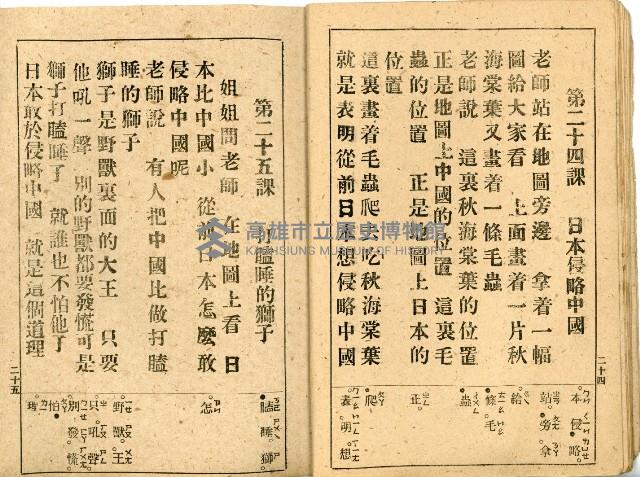 第二十四課　日本侵略中國
老師站在地圖旁邊　拿着一幅
圖給大家看　上面畫着一片秋
海棠葉又畫着一條毛蟲
老師說　這裏秋海棠的位置
正是地圖上中國的位置　這裏毛
蟲的位置　正是地圖上日本的
位置
這裏畫着毛蟲爬去吃秋海棠葉
就是表明從前日本想侵略中國
本侵略
站旁拿
給
條毛
蟲
正
爬
表明想
二十四
第二十五課　打瞌睡的獅子
姐姐問老師　在地圖上看　日
本比中國小　從前日本怎麽敢
侵略中國呢
老師說　有人把中國比做打瞌
睡的獅子
獅子是野獸裏面的大王　只要
他吼一聲　別的野獸都要發慌可是
獅子打瞌睡了　就誰也不怕他了
日本敢於侵略中國　就是這個道理
瞌睡獅
怎
野獸王
只吼聲
別發慌
怕
理
二十五
高雄市立歷史博物館
KAOHSIUNG MUSEUM OF HISTORY